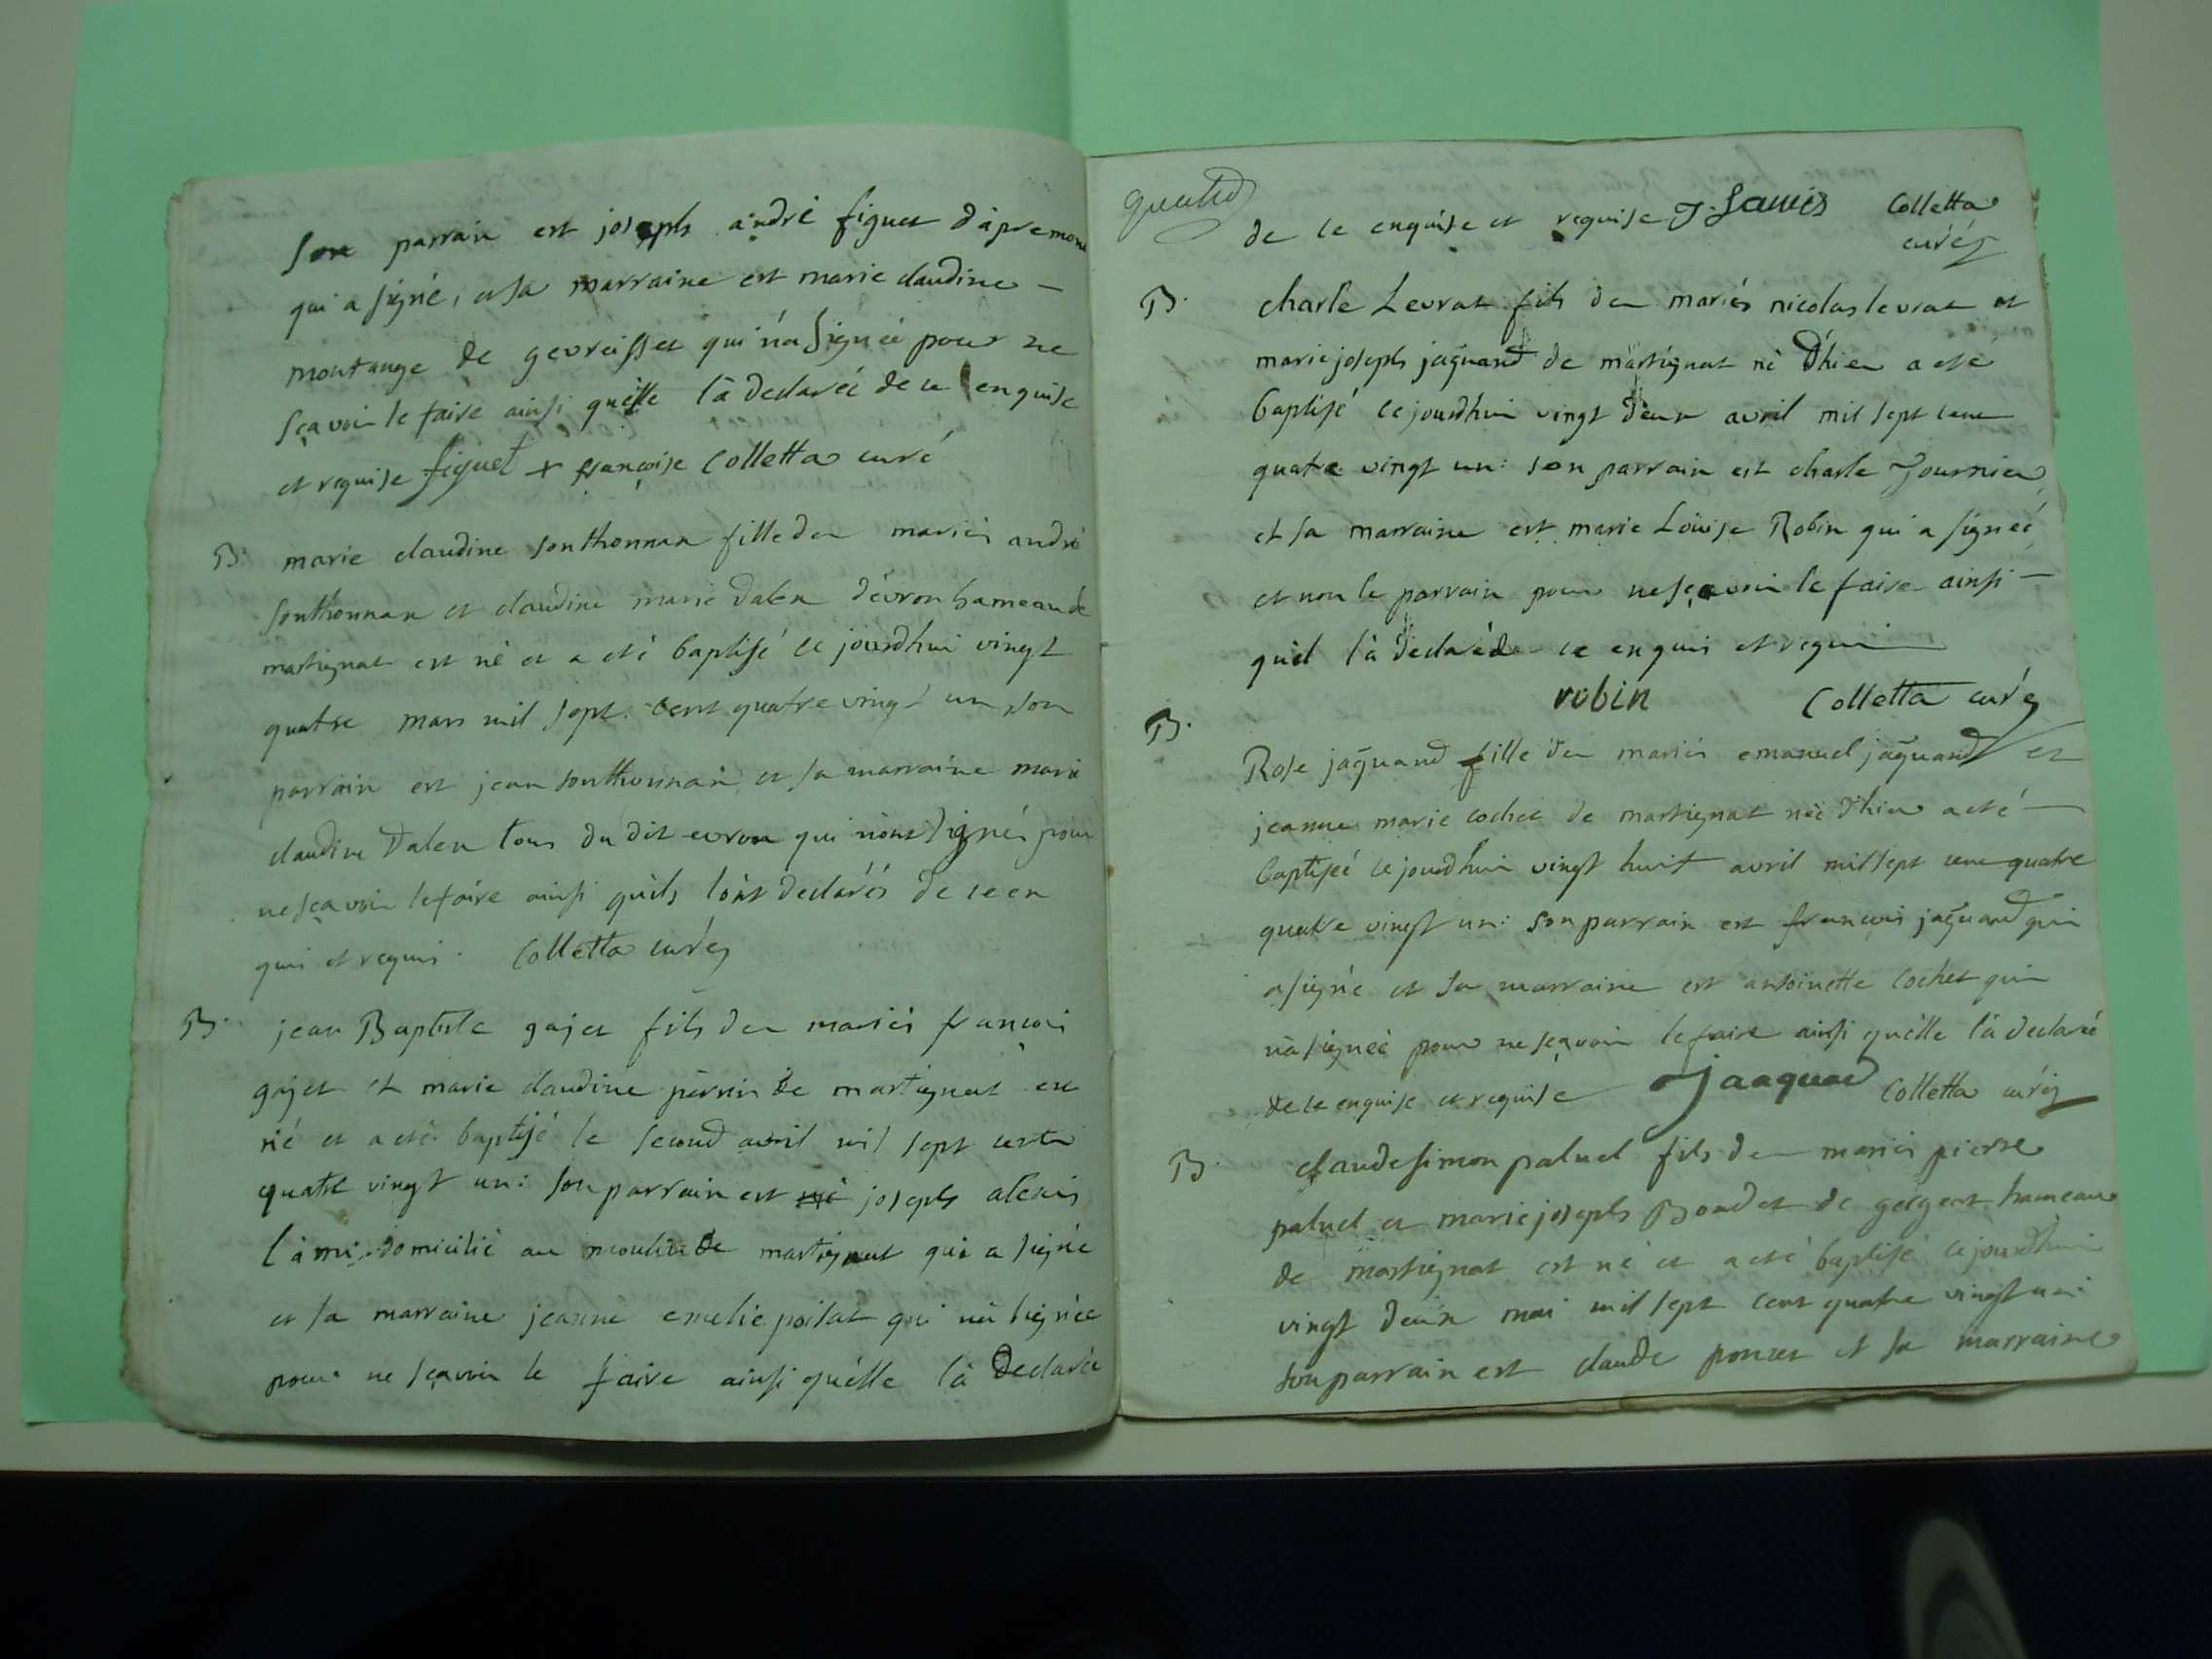 son parrain est joseph andré figuet d'apremont
qui a signé, et sa marraine est marie claudine –
montange de gevreisset qui n'a signée pour ne
sçavoir le faire ainsi qu'elle l'a declareé de ce enquise
et requise figuet + françoise Colletta curé
B. marie claudine sonthonnax fille des mariés andré
sonthonnax et claudine marie dalex d'evron hameau de
martignat est né et a eté baptisé ce jourdhui vingt
quatre mars mil sept cent quatre vingt un son
parrain est jean sonthonnax et sa marraine marie
claudine dalex tous du dit evron qui n'ont signés pour
ne sçavoir le faire ainsi qu'ils l'ont declarés de ce en
quis et requis. Colletta curé
B. jean Baptiste gajet fils des mariés francois
gajet et marie claudine perrin de martignat est
né et a eté baptisé le second avril mil sept cent
quatre vingt un: son parrain est né joseph alexis
l'ami domicilié au moulin de martignat qui a signé
et sa marraine jeanne emelie poisat qui n'a signée
pour ne sçavoir le faire ainsi qu'elle l'a declarée
quatre
de ce enquise et requise J. Lamis Colletta
curé
B. charle Levrat fils des mariés nicolas levrat et
marie joseph jaquand de martignat né d'hier a eté
baptisé ce jourdhui vingt deux avril mil sept cent
quatre vingt un: son parrain est charle Journier
et sa marraine est marie Louise Robin qui a signeé
et non le parrain pour ne sçavoir le faire ainsi –
qu'il l'a declaré de ce enquis et requis
robin Colletta curé
B. Rose jaquand fille des mariés emanuel jaquand et
jeanne marie cochet de martignat neé d'hier a eté –
baptiseé ce jourdhui vingt huit avril mil sept cent quatre
quatre vingt un: son parrain est francois jaquand qui
a signé et sa marraine est antoinette cochet qui
n'a signeé pour ne sçavoir le faire ainsi qu'elle l'a declaré
de ce enquise et requise Jaaquad Colletta curé
B. claude simon paluel fils des mariés pierre
paluel et marie joseph Bondet de gergent hameau
de martignat est né et a eté baptisé ce jourdhui
vingt deux mai mil sept cent quatre vingt un:
son parrain est claude poncet et sa marraine